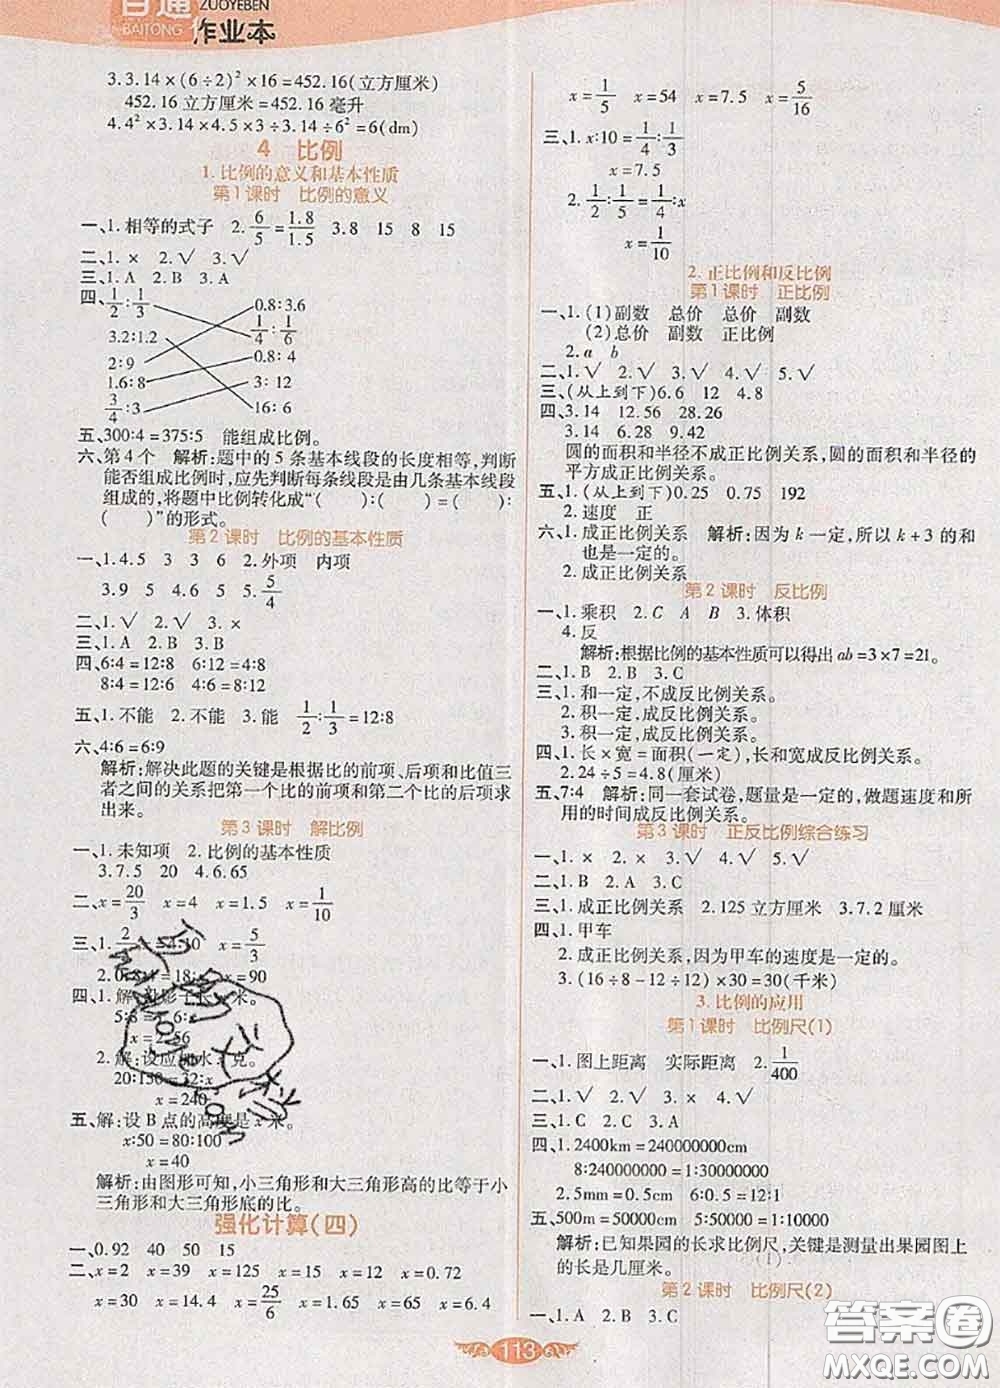 百通
ZUOYEBEN
BAITONG
作业本
3.3.14×(6÷2)²×16=452.16(立方厘米)
452.16立方厘米=452.16毫升
4.4²×3.14×4.5×3÷3.14÷6²=6(dm)
4 比例
1.比例的意义和基本性质
第1课时 比例的意义
一、1.相等的式子 2.6/5=1.8/1.5 3.8 15 8 15
二、1.× 2.√ 3.√
三、1.A 2.B 3.A
四、1/2:1/3 0.8:3.6
3.2:1.2 1/4:1/6
2:9 0.8:4
1.6:8 3:12
3/4:3 16:6
五、300:4=375:5 能组成比例。
六、第4个 解析:题中的5条基本线段的长度相等,判断
能否组成比例时,应先判断每条线段是由几条基本线段
组成的,将题中比例转化成“( ):( )=( ):
( )”的形式。
第2课时 比例的基本性质
一、1.4.5 3 3 6 2.外项 内项
3.9 5 4.6 5.5/4
二、1.√ 2.√ 3.×
三、1.A 2.B 3.B
四、6:4=12:8 6:12=4:8
8:4=12:6 4:6=8:12
五、1.不能 2.不能 3.能 1/2:1/3=12:8
六、4:6=6:9
解析:解决此题的关键是根据比的前项、后项和比值三
者之间的关系把第一个比的前项和第二个比的后项求
出来。
第3课时 解比例
一、1.未知项 2.比例的基本性质
3.7.5 20 4.6.65
二、x=20/3 x=4 x=1.5 x=1/10
三、1. x=5/3
x=90
四、1.解:
x=2.56
2.解:设应加水x克。
x=240
五、解:设B点的高度是x米。
x:50=80:100
x=40
解析:由图形可知,小三角形和大三角形高的比等于小
三角形和大三角形底的比。
强化计算(四)
一、0.92 40 50 15
二、x=2 x=39 x=125 x=15 x=12 x=0.72
x=30 x=14.4 x=25/6 x=1.65 x=65 x=6.4
x=1/5 x=54 x=7.5 x=5/16
三、1.x:10=1/4:1/3
x=7.5
2.1/2:1/5=1/4:x
x=1/10
2.正比例和反比例
第1课时 正比例
一、1.(1)副数 总价 总价 副数
(2)总价 副数 正比例
2.a b
二、1.√ 2.√ 3.√ 4.√ 5.√
三、(从上到下)6.6 12 4.8
四、3.14 12.56 28.26
3.14 6.28 9.42
圆的面积和半径不成正比例关系,圆的面积和半径的
平方成正比例关系。
五、1.(从上到下)0.25 0.75 192
2.速度 正
六、1.成正比例关系 解析:因为k一定,所以k+3的和
也是一定的。
2.成正比例关系
第2课时 反比例
一、1.乘积 2.C A B 3.体积
4.反
解析:根据比例的基本性质可以得出ab=3×7=21。
二、1.B 2.B 3.C
三、1.和一定,不成反比例关系。
2.积一定,成反比例关系。
3.积一定,成反比例关系。
四、1.长×宽=面积(一定),长和宽成反比例关系。
2.24÷5=4.8(厘米)
五、7:4 解析:同一套试卷,题量是一定的,做题速度和所
用的时间成反比例关系。
第3课时 正反比例综合练习
一、1.× 2.× 3.√ 4.√ 5.√
二、1.B 2.A 3.C
三、1.成正比例关系 2.125立方厘米 3.7.2厘米
四、1.甲车
2.成正比例关系,因为甲车的速度是一定的。
3.(16÷8-12÷12)×30=30(千米)
3.比例的应用
第1课时 比例尺(1)
一、1.图上距离 实际距离 2.1/400
二、1.√ 2.√ 3.√ 4.√
三、1.C 2.C 3.A
四、1.2400km=240000000cm
8:240000000=1:30000000
2.5mm=0.5cm 6:0.5=12:1
五、500m=50000cm 5:50000=1:10000
解析:已知果园的长求比例尺,关键是测量出果园图上
的长是几厘米。
第2课时 比例尺(2)
一、1.A 2.B 3.A 4.C
113
答案圈
MXQE.COM